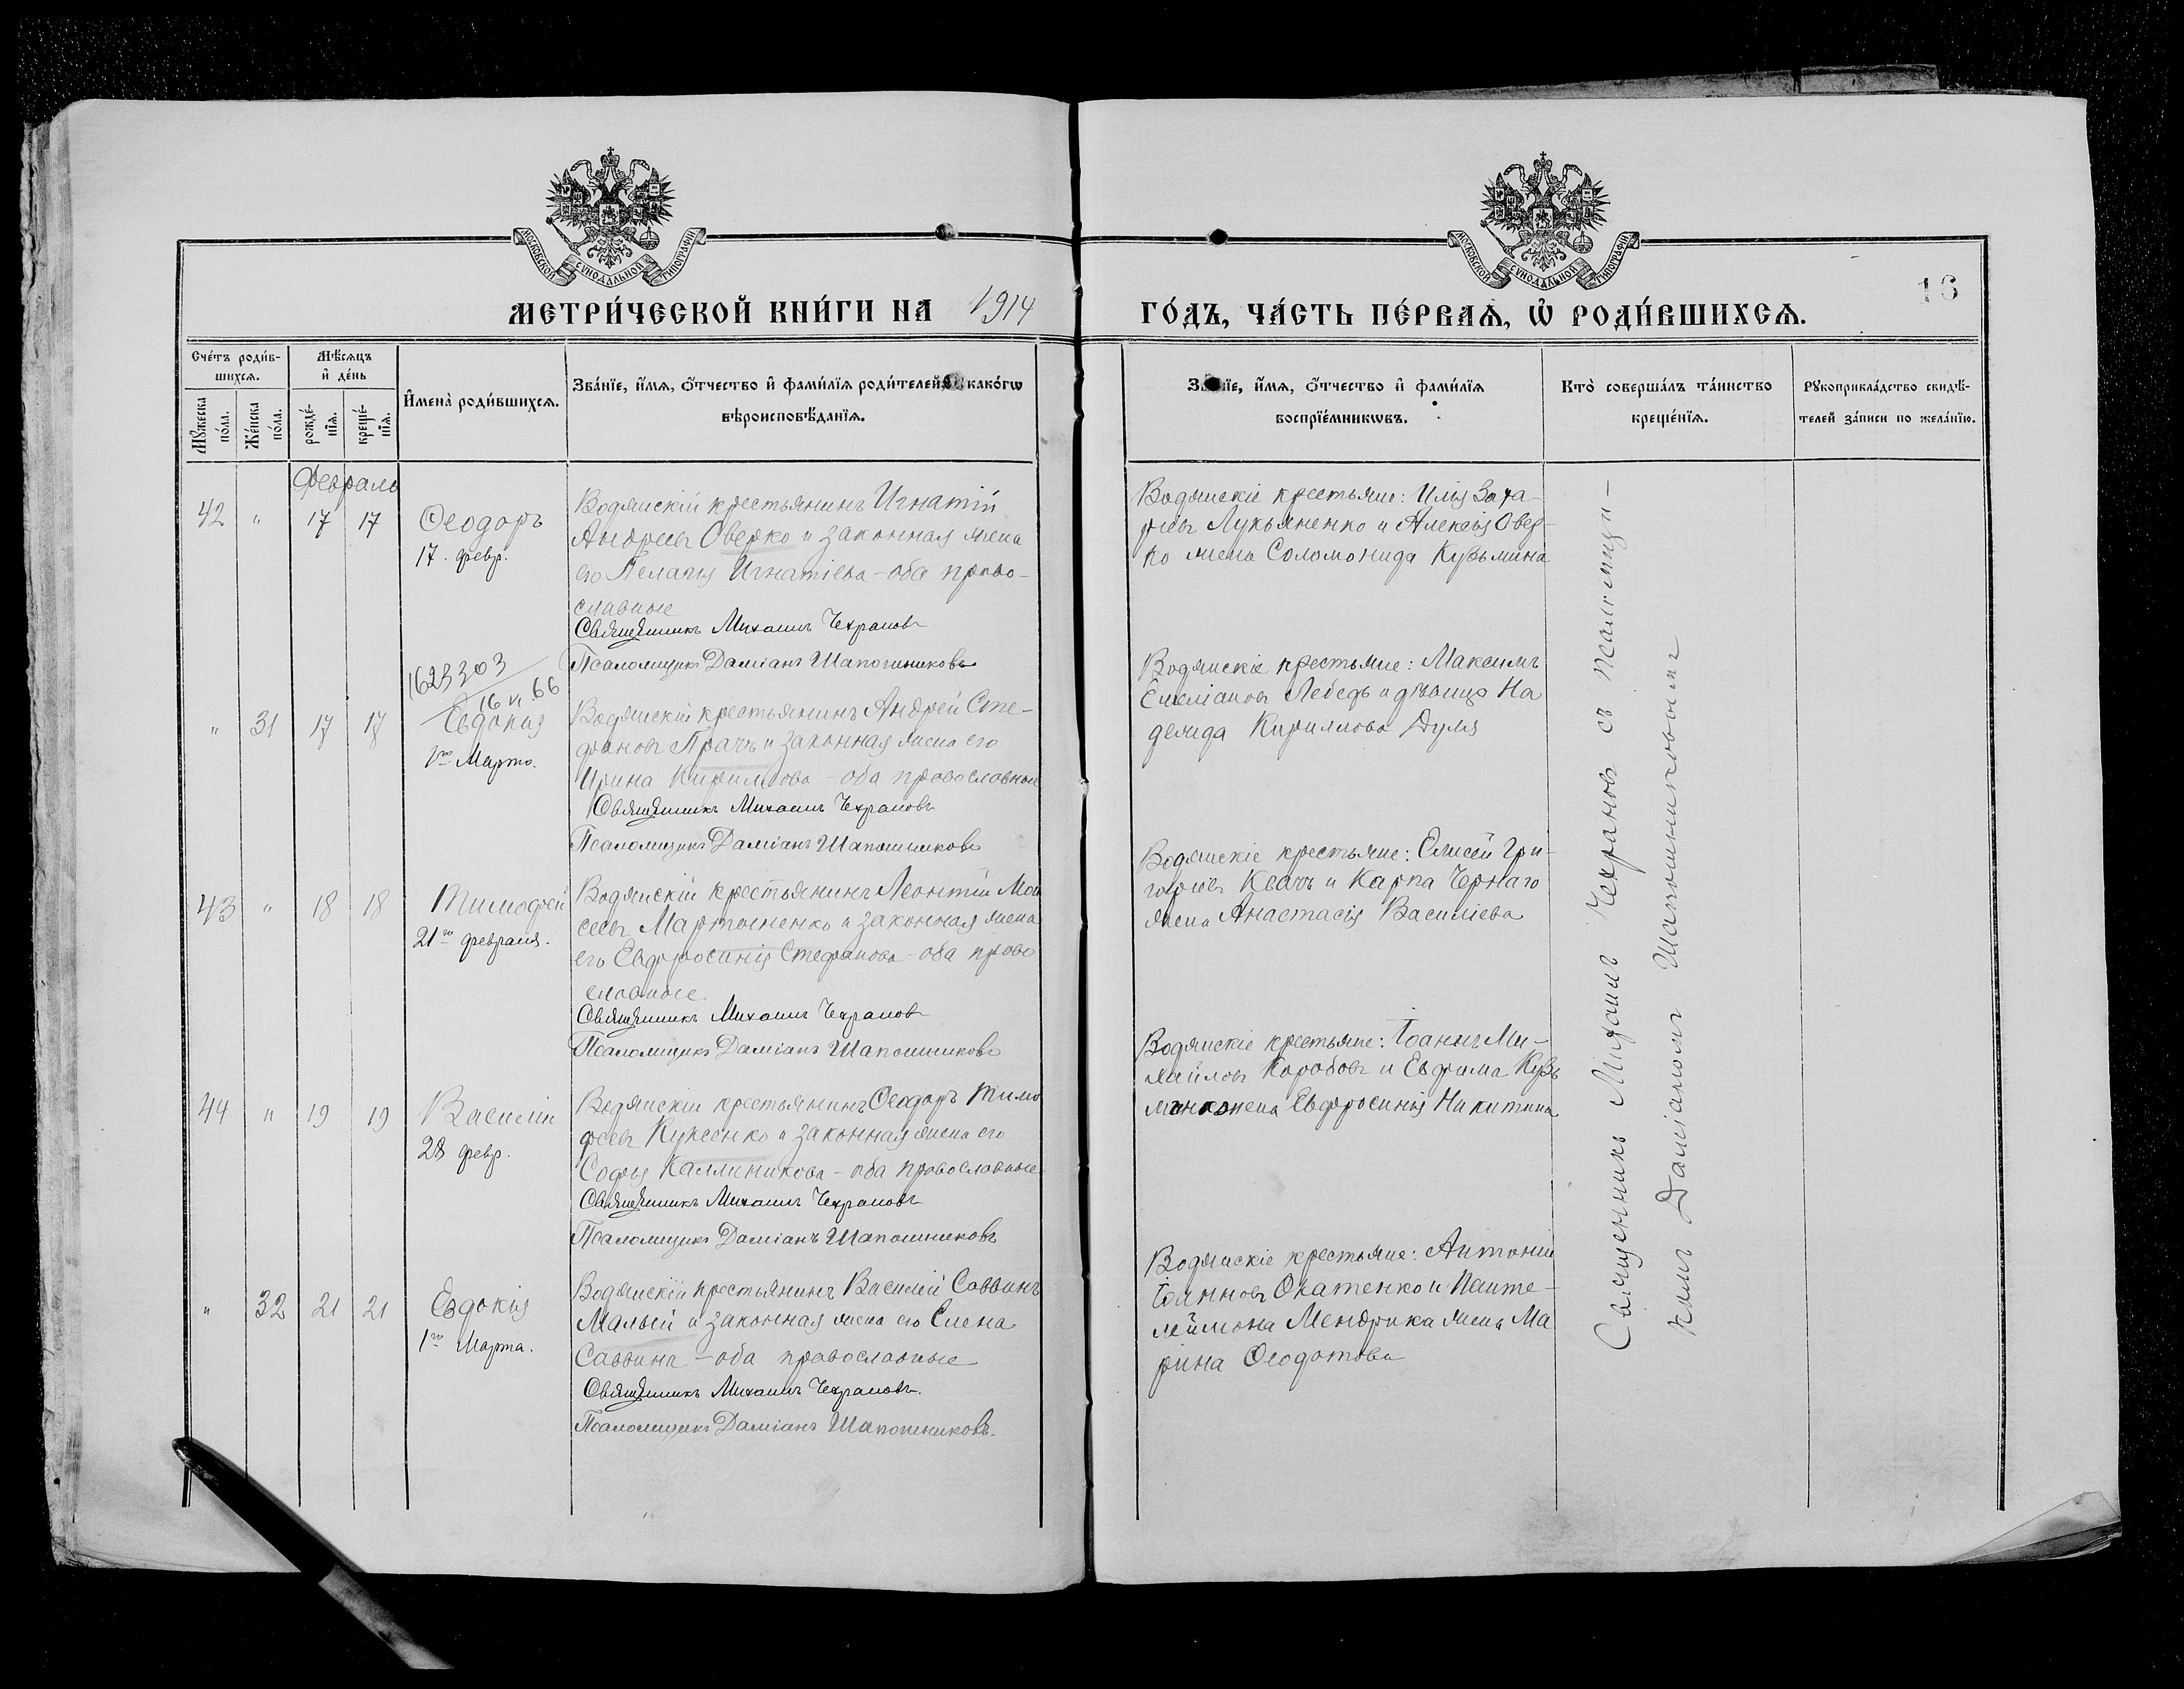 МОСКОВСКОЙ СѴНОДАЛЬНОЙ ТИПОГРАФІИ
МОСКОВСКОЙ СѴНОДАЛЬНОЙ ТИПОГРАФІИ
16
МЕТРИ́ЧЕСКОЙ КНИ́ГИ НА 1914 ГО́ДЪ, ЧА́СТЬ ПЕ́РВАѦ, Ѡ҆ РОДИ́ВШИХСѦ.
Сче́тъ роди́в-
шихсѧ.
Мꙋ́жеска по́ла.
Же́нска по́ла.
Мѣ́сѧцъ
и҆ де́нь
рожде́-
нїѧ.
креще́-
нїѧ.
И҆мена̀ роди́вшихсѧ.
Зва́нїе, и҆́мѧ, ѻ҆́тчество и҆ фами́лїѧ роди́телей, и҆ како́гѡ
вѣроисповѣ́данїѧ.
Зва́нїе, и҆́мѧ, ѻ҆́тчество и҆ фами́лїѧ
воспрїе́мникѡвъ.
Кто̀ соверша́лъ та́инство
креще́нїѧ.
Рꙋкоприкла́дство свидѣ́-
телей за́писи по жела́нїю.
Февраль
42 " 17 17 Ѳеодоръ
17. февр.
Водянскій крестьянинъ Игнатій
Андреевъ Оверко и законная жена
его Пелагія Игнатіева - оба право-
славные
Священникъ Михаилъ Чехрановъ
Псаломщикъ Даміанъ Шапошниковъ
Водянскіе крестьяне: Илія Заха-
ріевъ Лукьяненко и Алексія Овер-
ко жена Соломонида Кузьмина
1623303
16 VI. 66
" 31 17 17 Евдокія
1го Марта.
Водянскій крестьянинъ Андрей Сте-
фановъ Прачъ и законная жена его
Ирина Кириллова - оба православные
Священникъ Михаилъ Чехрановъ
Псаломщикъ Даміанъ Шапошниковъ
Водянскіе крестьяне: Максимъ
Емеліановъ Лебедь и дѣвица На
дежда Кириллова Дуля
43 " 18 18 Тимофей
21го февраля.
Водянскій крестьянинъ Леонтій Мои
сеевъ Мартыненко и законная жена
его Евфросинія Стефанова - оба право
славные.
Священникъ Михаилъ Чехрановъ
Псаломщикъ Даміанъ Шапошниковъ
Водянскіе крестьяне: Елисей Гри-
горіевъ Квачъ и Карпа Чернаго
жена Анастасія Василіева
44 " 19 19 Василій
28 февр.
Водянскій крестьянинъ Ѳеодоръ Тимо
феевъ Куксенко и законная жена его
Софія Каллиникова - оба православные
Священникъ Михаилъ Чехрановъ
Псаломщикъ Даміанъ Шапошниковъ
Водянскіе крестьяне: Іоаннъ Ми-
хайловъ Коробовъ и Евфима Кузь
менко жена Евфросинія Никитина
" 32 21 21 Евдокія
1го Марта.
Водянскій крестьянинъ Василій Саввинъ
Малый и законная жена его Елена
Саввина - оба православные
Священникъ Михаилъ Чехрановъ.
Псаломщикъ Даміанъ Шапошниковъ.
Водянскіе крестьяне: Антоній
Іоанновъ Окатенко и Панте-
леймона Мендрика жена Ма
рина Ѳеодотова
Священникъ Михаилъ Чехрановъ съ псаломщи-
комъ Даміаномъ Шапошниковымъ